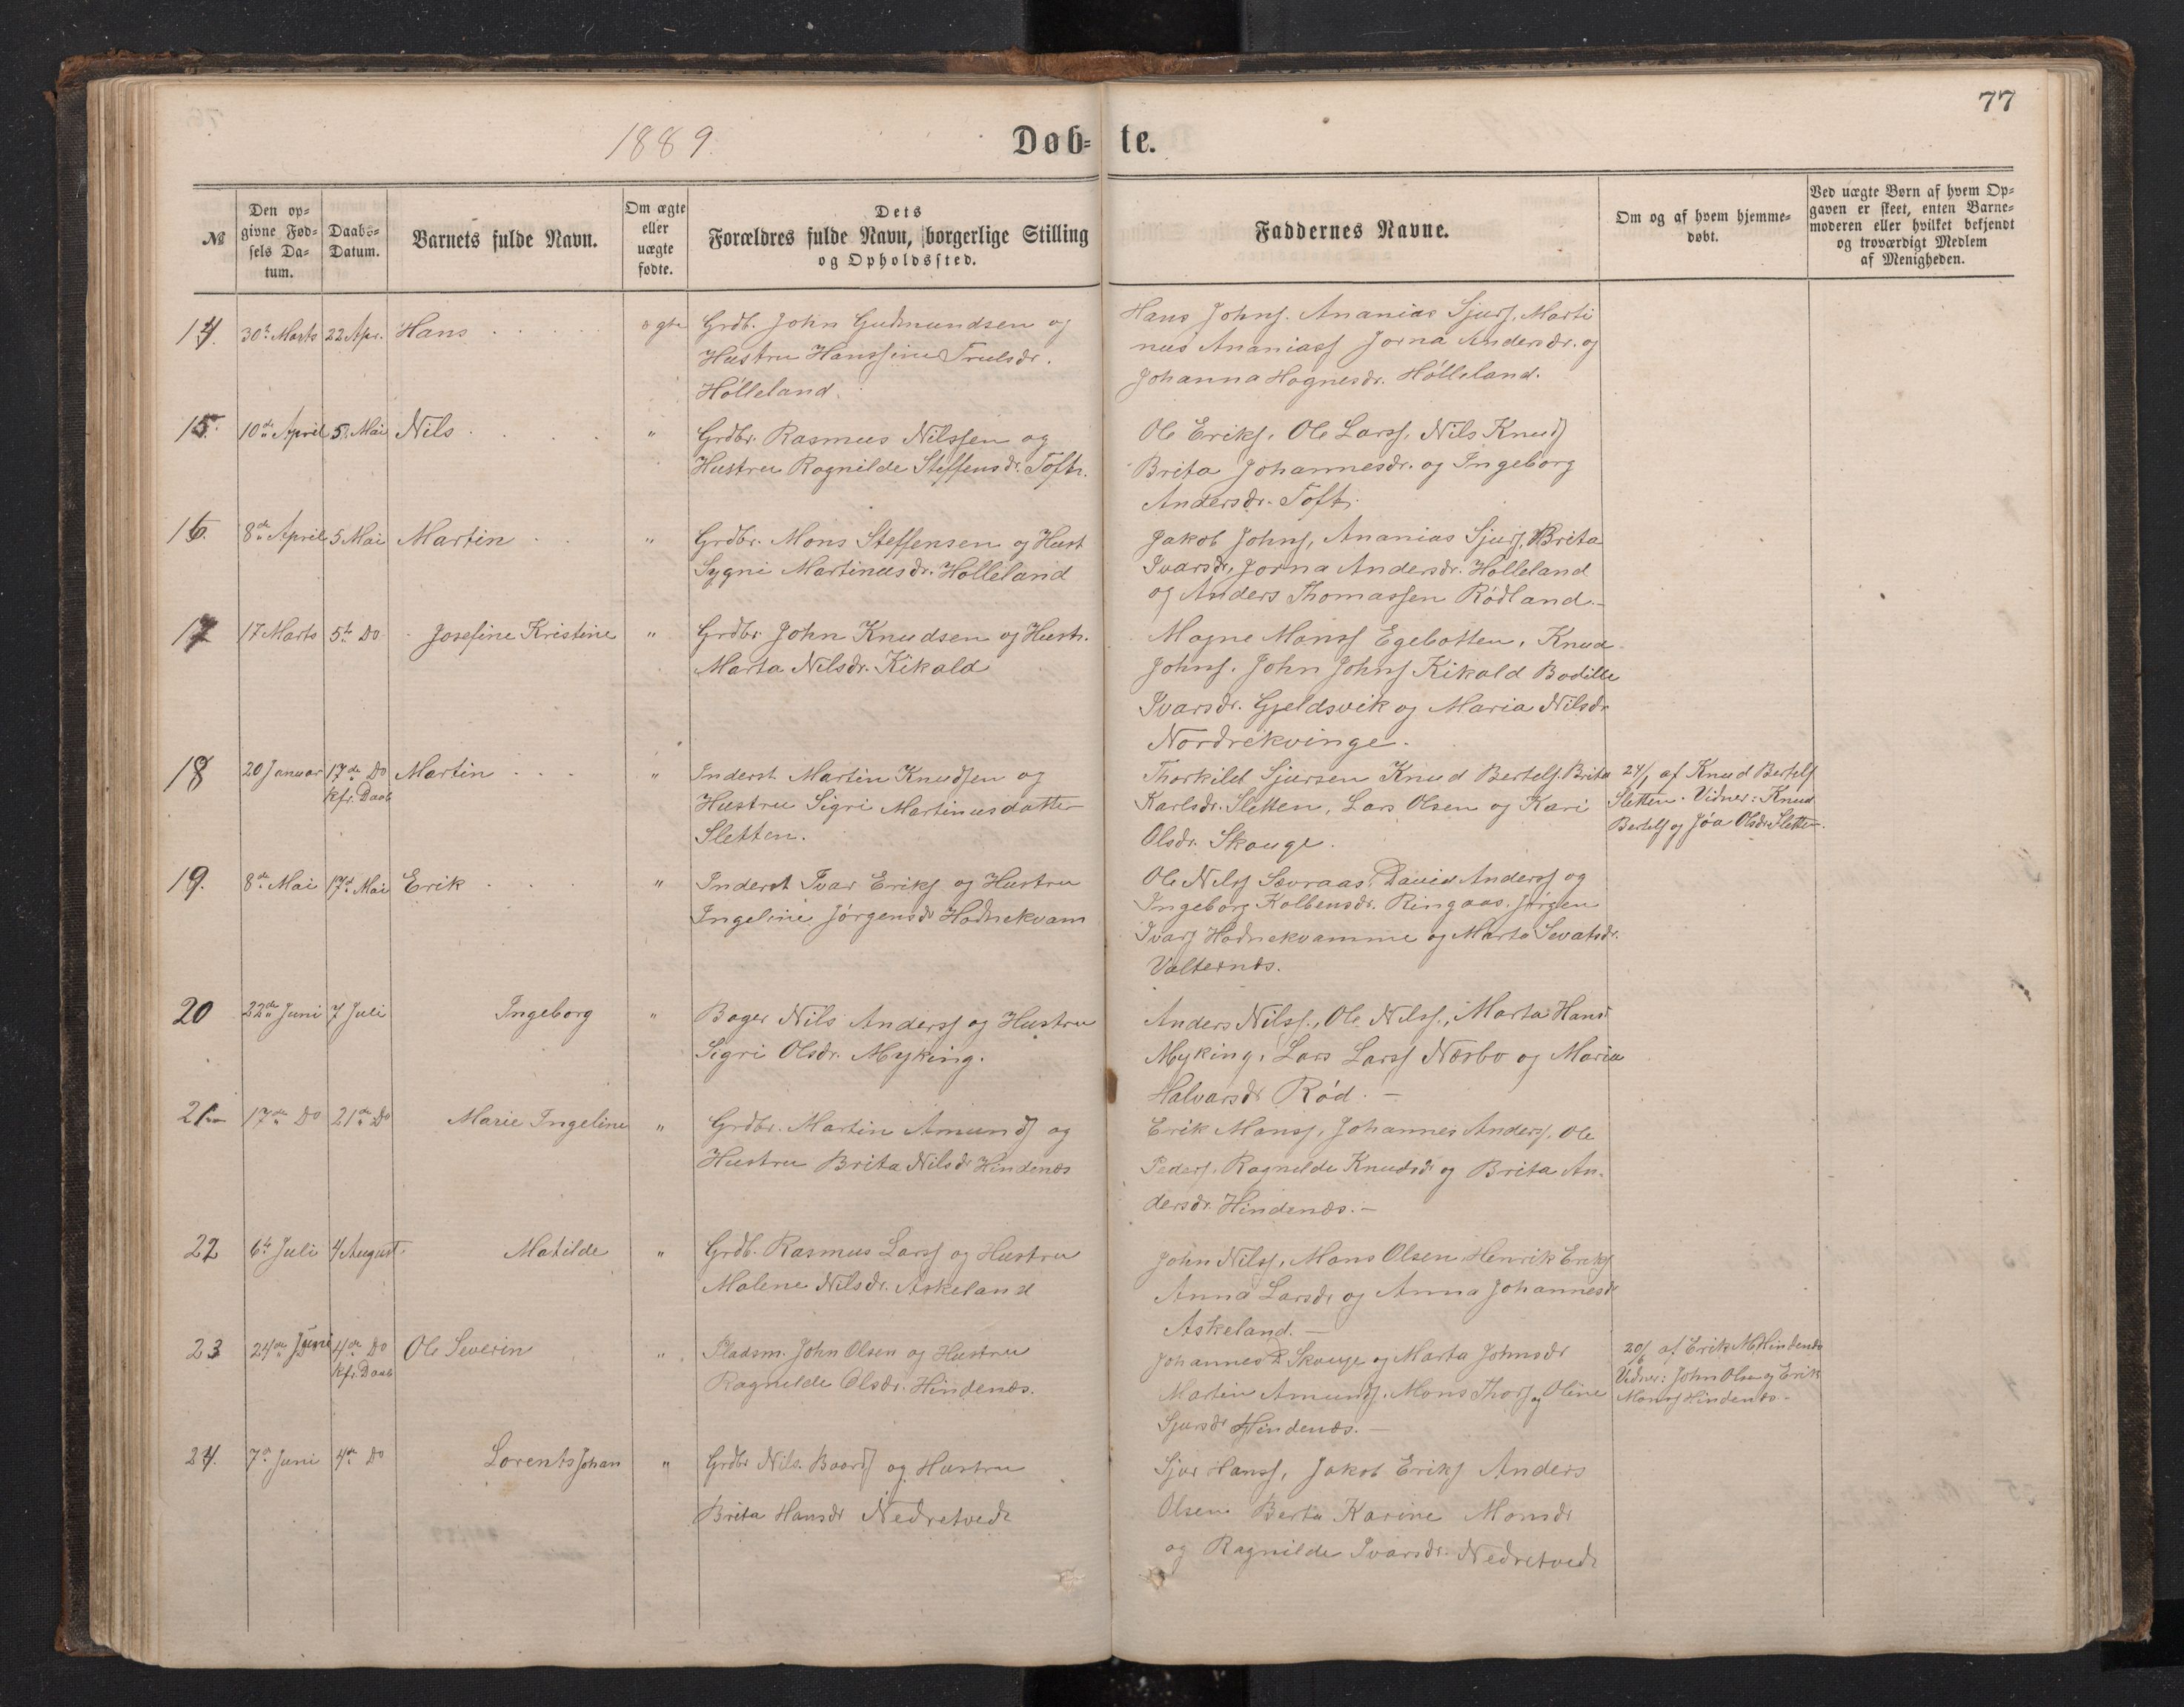 77
1889.
Døb- te.
№
Den op-
givne Fød-
sels Da-
tum.
Daabs-
Datum.
Barnets fulde Navn.
Om ægte
eller
uægte
fødte.
Dets
Forældres fulde Navn, borgerlige Stilling
og Opholdssted.
Faddernes Navne.
Om og af hvem hjemme-
døbt.
Ved uægte Børn af hvem Op-
gaven er skeet, enten Barne-
moderen eller hvilket bekjendt
og troværdigt Medlem
af Menigheden.
14. 30te Marts 22 Apr. Hans ægte Grdb. John Gudmundsen og
Hustru Hanssine Trulsdr.
Hólleland.
Hans Johns. Ananias Sjurs. Marti
nus Ananiass Jorna Andersdr. og
Johanna Hognesdr. Hólleland.
15. 10de April 5. Mai Nils " Grdbr. Rasmus Nilssen og
Hustru Ragnilde Steffensdr. Toft.
Ole Eriks. Ole Larss. Nils Knuds
Brita Johannesdr. og Ingeborg
Andersdr. Toft.
16. 8de April 5 Mai Martin " Grdbr. Mons Steffensen og Hust
Sygni Martinusdr. Holleland
Jakob Johns, Ananias Sjurs, Brita
Ivarsdr, Jorna Andersdr. Holleland
og Anders Thomassen Rödland.-
17 17 Marts 5te Do Josefine Kristine " Grdbr John Knudsen og Hustr.
Marta Nilsdr. Kikald
Magne Monss Egebotten, Knud
Johns. John Johns Kikald Bodille
Ivarsdr. Gjeldsvik og Maria Nilsdr
Nordrekvinge.
18 20 Januar 17de Do Martin " Inderst Martin Knudsen og
kfr. Daab
Hustru Sigri Martinusdatter
Sletten.
Thorkild Sjursen Knud Bertels. Brita
Karlsdr. Sletten, Lars Olsen og Kari
Olsdr. Skauge.
24/1 af Knud Bertels
Sletten. Vidner: Knud
Bertels og Jóa Olsdr Sletten.
19. 8de Mai 17d Mai Erik " Inderst Ivar Eriks og Hustru
Ingeline Jörgensdr Hodnekvam
Ole Nilss Sævraas, David Anderss og
Ingeborg Kolbensdr. Ringaas. Jörgen
Ivars Hodnekvamme og Marta Sevatsdr.
Valternes.
20 22de Juni 7 Juli Ingeborg " Bager Nils Anderss og Hustru
Sigri Olsdr. Myking.
Anders Nilss., Ole Nilss., Marta Hans
Myking, Lars Larss Nesbo og Maria
Halvarsdr Rød. -
21 17de Do 21de Do Marie Ingeline " Grdbr. Martin Amunds og
Hustru Brita Nilsdr Hindenes
Erik Monss, Johannes Anders, Ole
Peders, Ragnilde Knudsdr og Brita An-
dersdr. Hindenes.-
22 6te Juli 4 August. Matilde " Grdb. Rasmus Larss og Hustru
Malene Nilsdr. Askeland
John Nilss, Mons Olsen, Henrik Eriks
Anna Larsdr og Anna Johannesdr
Askeland. -
23 24de Juni 4de Do Ole Severin " Pladsm. John Olsen og Hustru
kfr. Daab
Ragnilde Olsdr. Hindenes.
Johannes Skauge og Marta Johnsdr
Martin Amunds, Mons Thors og Oline
Sjursdr Hindenes.-
20/6 af Erik M. Hindenes
Vidner: John Olsen og Erik
Monss Hindenes.
24. 7de Juni 4de Do Lorents Johan " Grdbr Nils. Baards og Hustru
Brita Hansdr Nedretvedt
Sjur Hanss, Jakob Eriks Anders
Olsen Berta Karine Monsdr
og Ragnilde Ivarsdr. Nedretvedt